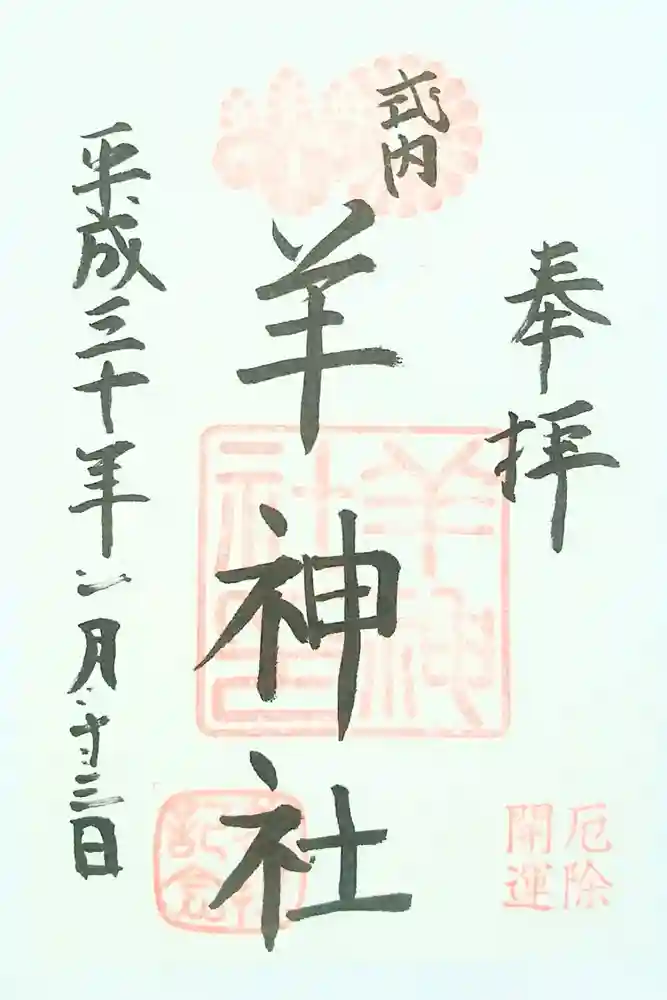 奉拝
厄除
開運
式内
羊神社
羊神
社印
記念
平成三十年二月二十三日